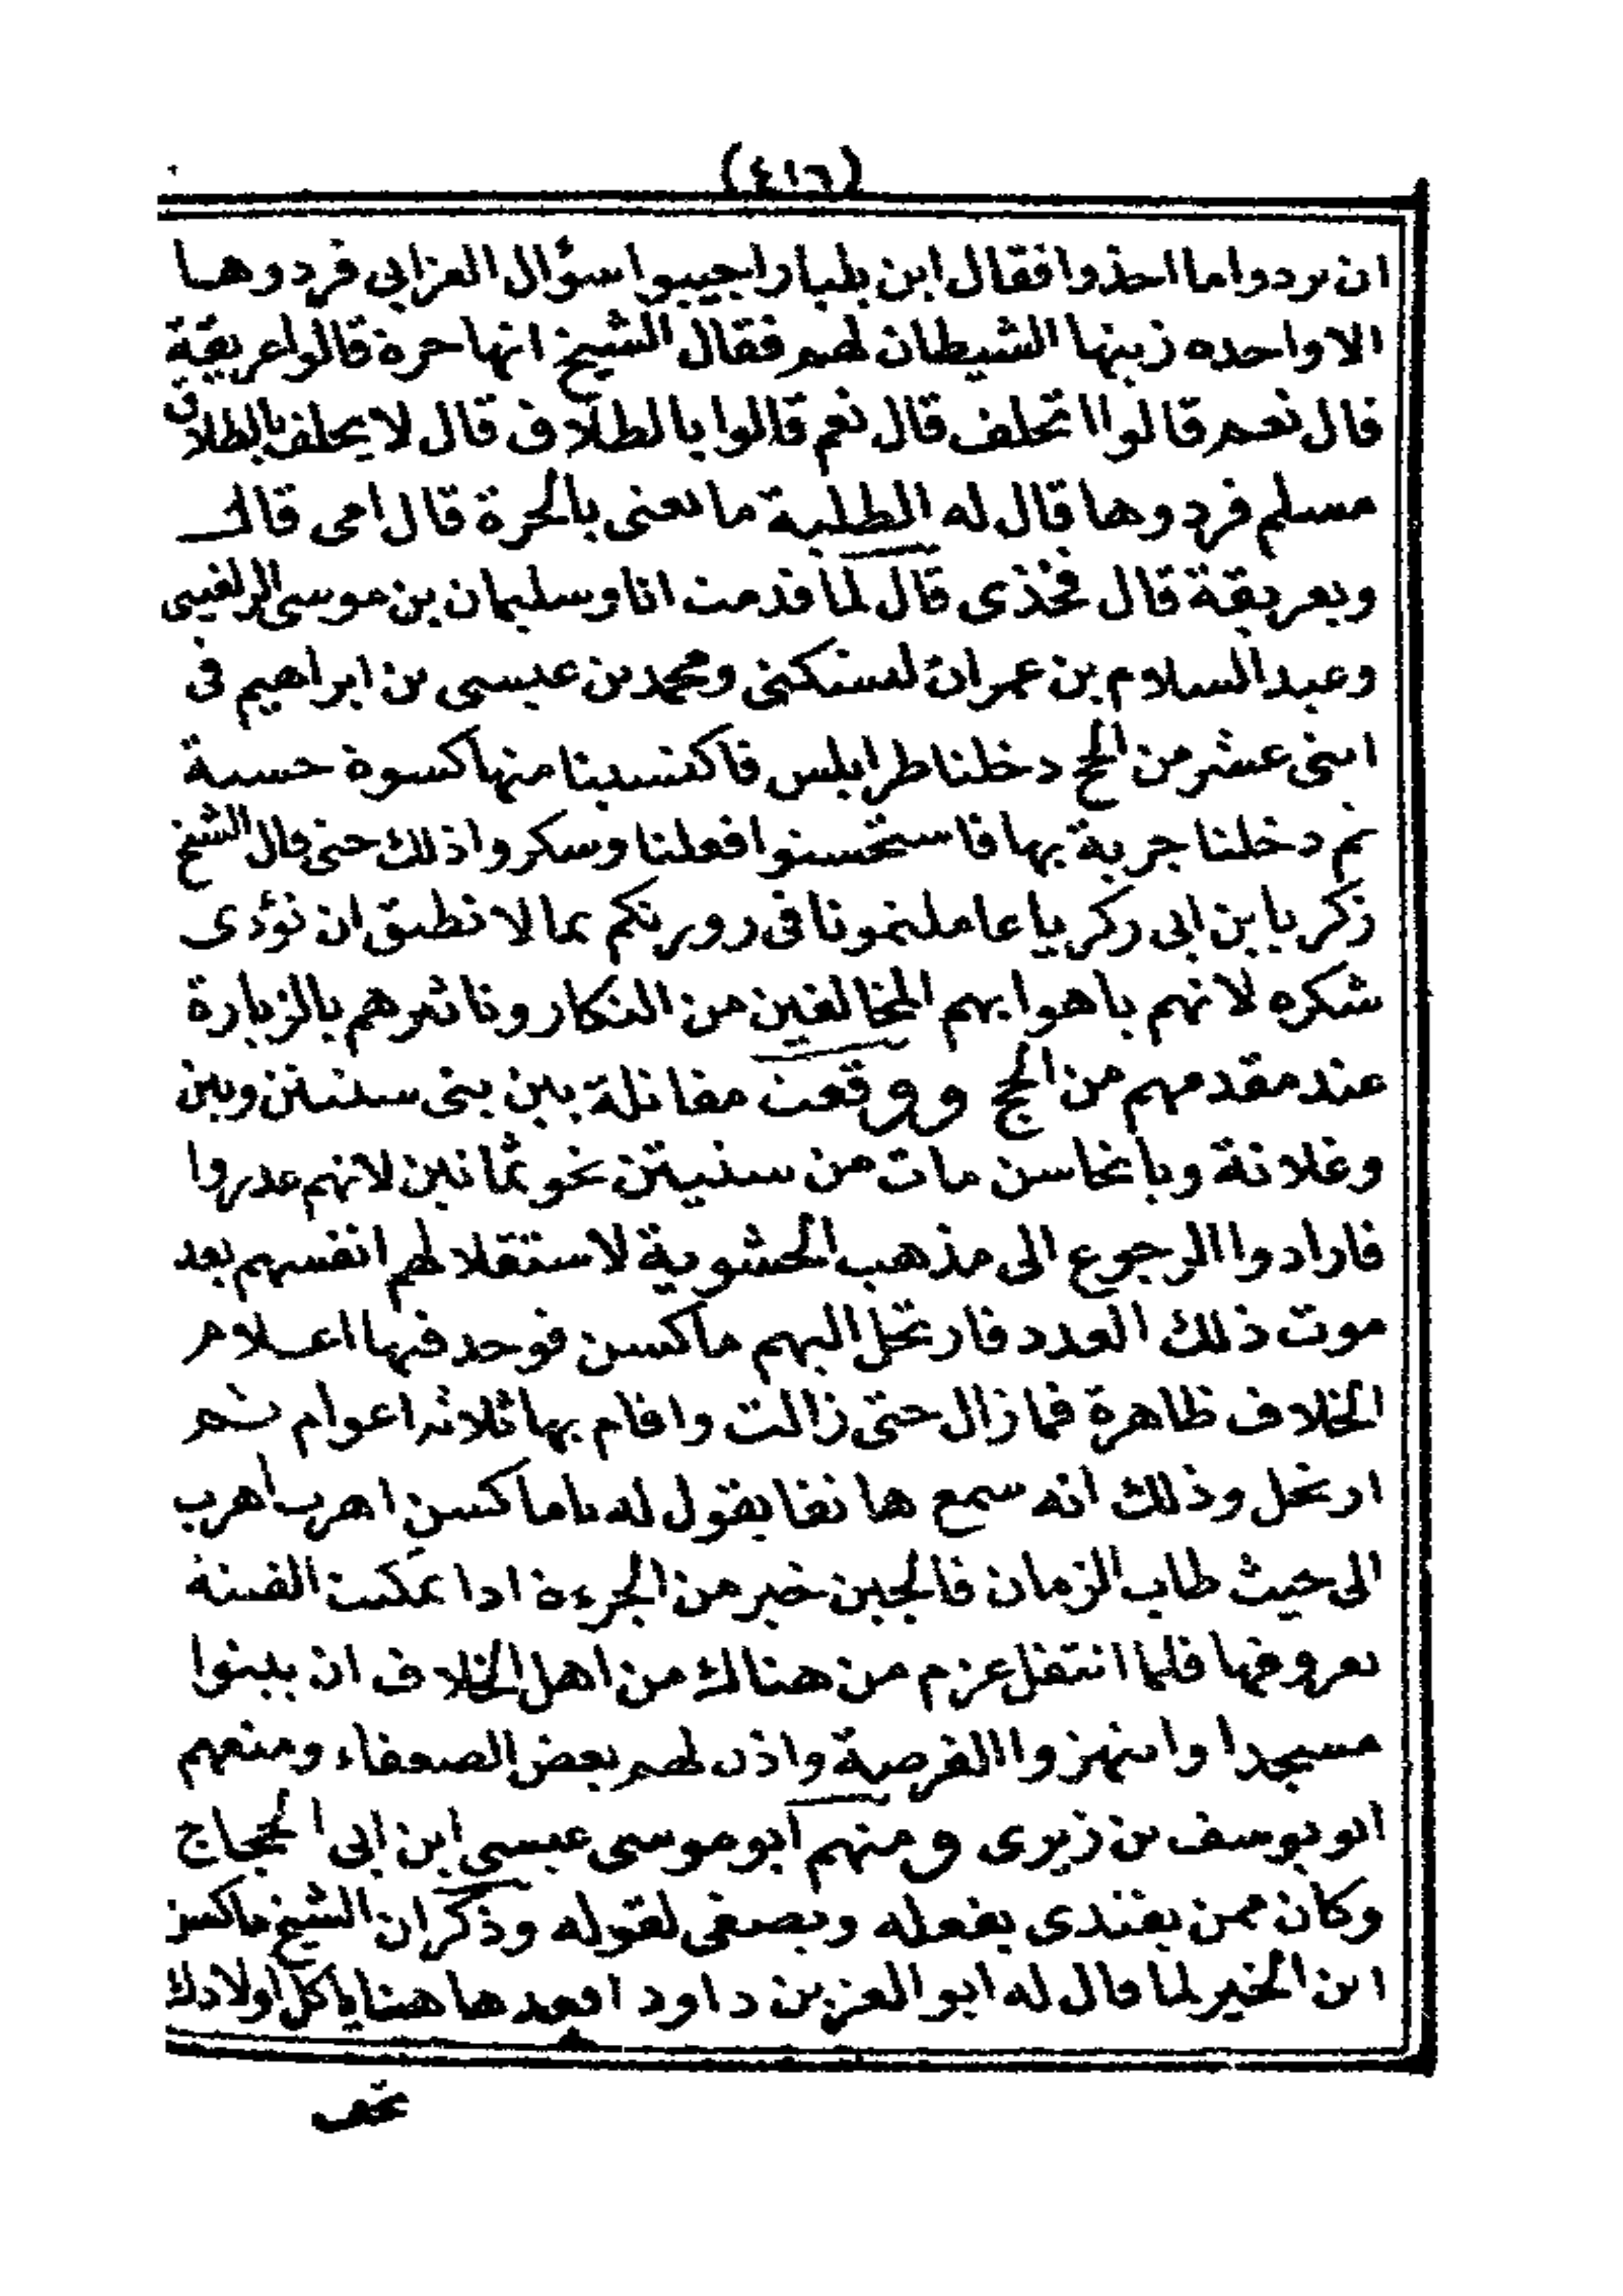 (٤١٦)
ان يردوا ما اخذوا فقال ابن بطيار اجيبوا سؤال العزابى فردوها
الا واحده زينها الشيطان لهم فقال الشيخ انها حرة قالوا عريقة
قال نعم قالوا اتحلف قال نعم قالوا بالطلاق قال لا يحلف بالطلاق
مسلم فردوها قال له الطلبة ما تعنى بالحرة قال امى قال
وبعريقة قال فخذى قال لما قدمت انا وسليمان بن موسى الزلفينى
وعبد السلام بن عمران ومحمد بن عيسى بن ابراهيم فى
اثنى عشر من الحج دخلنا طرابلس فاكتسبنا منها كسوة حسنة
ثم دخلنا جربة بها فاستحسنوا فعلنا وسكروا ذلك حتى قال الشيخ
زكريا بن ابى زكريا عاملتمونا فى زورتكم بما لا نطيق ان نؤدى
شكره لانهم باهوا بهم المخالفين من النكار وناثروهم بالزيارة
عند مقدمهم من الحج و ووقعت مقاتلة بين بنى سنتتن وبين
وغلانة وبانخاسن مات من سنيتن نحو ثمانين لانهم غدروا
فارادوا الرجوع الى مذهب الحشوية لاستقلالهم انفسهم بعد
موت ذلك العدد فارتحل اليهم ماكسن فوجد فيها اعلام
الخلاف ظاهرة فما زال حتى زالت واقام بها ثلاثة اعوام ثم
ارتحل وذلك انه سمع هاتفا يقول له ياماكسن اهرب اهرب
الى حيث طاب الزمان فالجبن خير من الجرءة اذا عكست الفتنة
بعروقها فلما انتقل عزم من هناك من اهل الخلاف ان يبنوا
مسجدا وانتهزوا الفرصة واذن لهم بعض الضعفاء ومنعهم
ابو يوسف بن زيرى و منهم ابو موسى عيسى ابن ابى الحجاج
وكان ممن يقتدى بفعله ويصغى لقوله وذكر ان الشيخ ماكسن
ابن الخير لما قال له ابو العز بن داود اقعد هاهنا ياكل اولادك